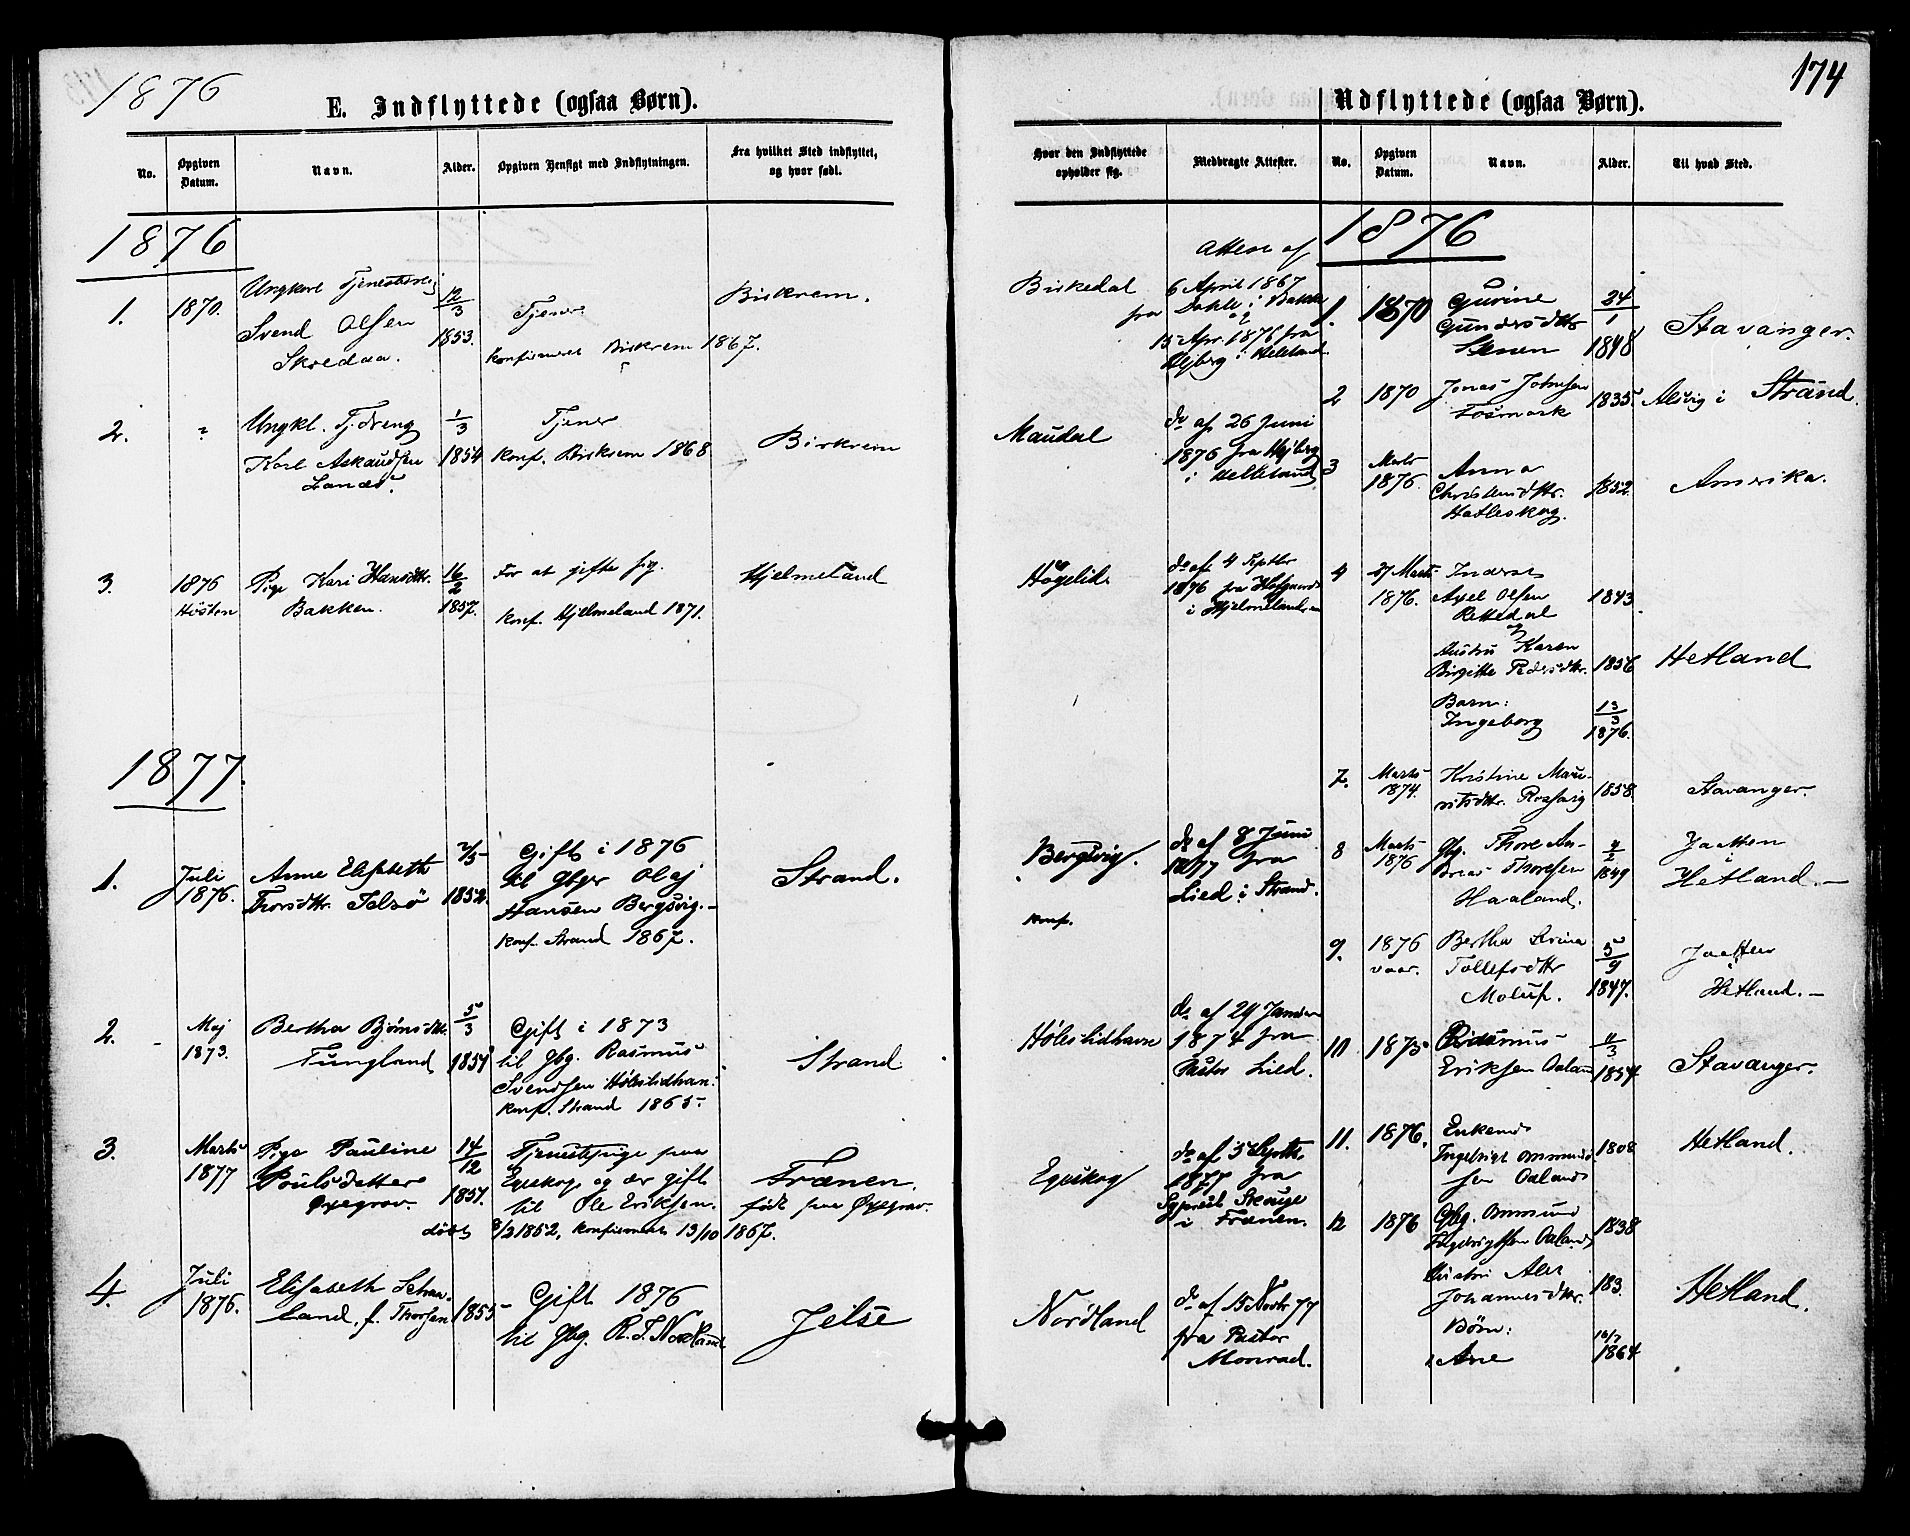 1876
174
E. Indflyttede (ogsaa Børn).
No.
Opgiven
Datum.
Navn.
Alder.
Opgiven Hensigt med Indflytningen.
Fra hvilket Sted indflyttet,
og hvor født.
Hvor den Indflyttede
opholder sig.
Medbragte Attester.
1876
1.
1870.
Ungkarl
Svend Olsen
Skredaa.
12/3
1853.
Tjener
konfirmeret Birkrem 1867.
Birkrem.
Birkedal
Attest af
6 April 1867
fra Dahle i Bakke
15 Apr. 1876 fra
i Helleland
2.
Ungkl. Tj.dreng
Karl
1/3
1854
Tjener
Konf. Birkrem 1868
Birkrem
Maudal
do af 26 Juni
1876 fra
i Helleland
3.
1876
Høsten
Pige Kari Hansdttr.
Bakken.
16/2
1857.
For at gifte sig.
Konf. Hjelmeland 1871.
Hjelmeland
Høgelid
do af 4 Septbr
1876 fra
i Hjelmeland
1877.
1.
Juli
1876.
Anne Elisabeth
Thorsdttr.
1852.
Gift i 1876
til Gbgr Olaj
Hansen Bergsvig.
Konf. Strand 1867.
Strand.
Bergsvig.
Konf.
do af 8 Juni
1877 fra
Lied i Strand.
2.
Maj
1873.
Bertha Bjørnsdttr.
Tungland
5/3
Gift i 1873
til Gbg. Rasmus
Svendsen
Konf. Strand 1865.
Strand
Høleslidhavn
do af 24
1874 fra
Pastor Lied.
3.
Marts
1877
Pige Pauline
Poulsdatter
Øxegrav.
14/12
1851.
Tjenestepige paa
Egeskog og er gift
til Ole Eriksen.
døbt 8/2 1852, konfirmeret 13/10 1867.
Frænen.
født paa Øxegrav.
Egeskog
do af 5 Septbr.
1877 fra
i Frænen.
4.
Juli
1876.
Elisabeth
land, f. Thorsen
1855
Gift 1876
til Gbg. R. T. Nordland
Jelse
Nordland
do af 15 Novbr 77
fra Pastor
Monrad.
Udflyttede (ogsaa Børn).
No.
Opgiven
Datum.
Navn.
Alder.
Til hvad Sted.
1876
1.
1870
Gurine
Gundersdttr
24/1
1848
Stavanger.
2
1870
Jonas Johnsen
Fosmark
1835.
Alsvig i Strand.
3
Marts
1876.
Anna
Christensdttr.
Hatleskog.
1852.
Amerika.
4
27 Marts
1876.
Inderst
Axel Olsen
Rettedal
1843.
og
Hustru Karen
Birgitte Pedersdttr.
1856
Hetland
Barn:
Ingeborg
13/3
1876.
7.
Marts
1874.
Kristine Mau-
ritsdttr.
1858.
Stavanger.
8
Marts
1876
Gbg. Thore An-
dreas Thoresen
Haaland.
4/2
1849
Jaatten
i
Hetland.
9.
1876
vaar.
Bertha Serina
Tollefsdttr
Moluf.
5/9
1847.
Jaatten
i
Hetland.
10
1875
Rasmus
Eriksen Oaland
4/3
1854.
Stavanger.
11.
1876.
Enkemd.
Ingebrigt Ommund-
sen Oaland
1808
Hetland.
12
1876
Gbg. Ommund
Ingebrigtsen Oaland
1838
Hustru
Johannesdttr.
183.
Hetland.
Børn:
Ane
16/7
1864